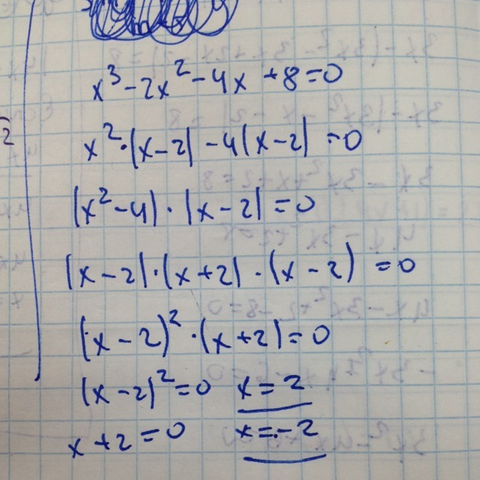 x³-2x²-4x+8=0
x²·(x-2)-4(x-2)=0
(x²-4)·(x-2)=0
(x-2)·(x+2)·(x-2)=0
(x-2)²·(x+2)=0
(x-2)²=0 x=2
x+2=0 x=-2